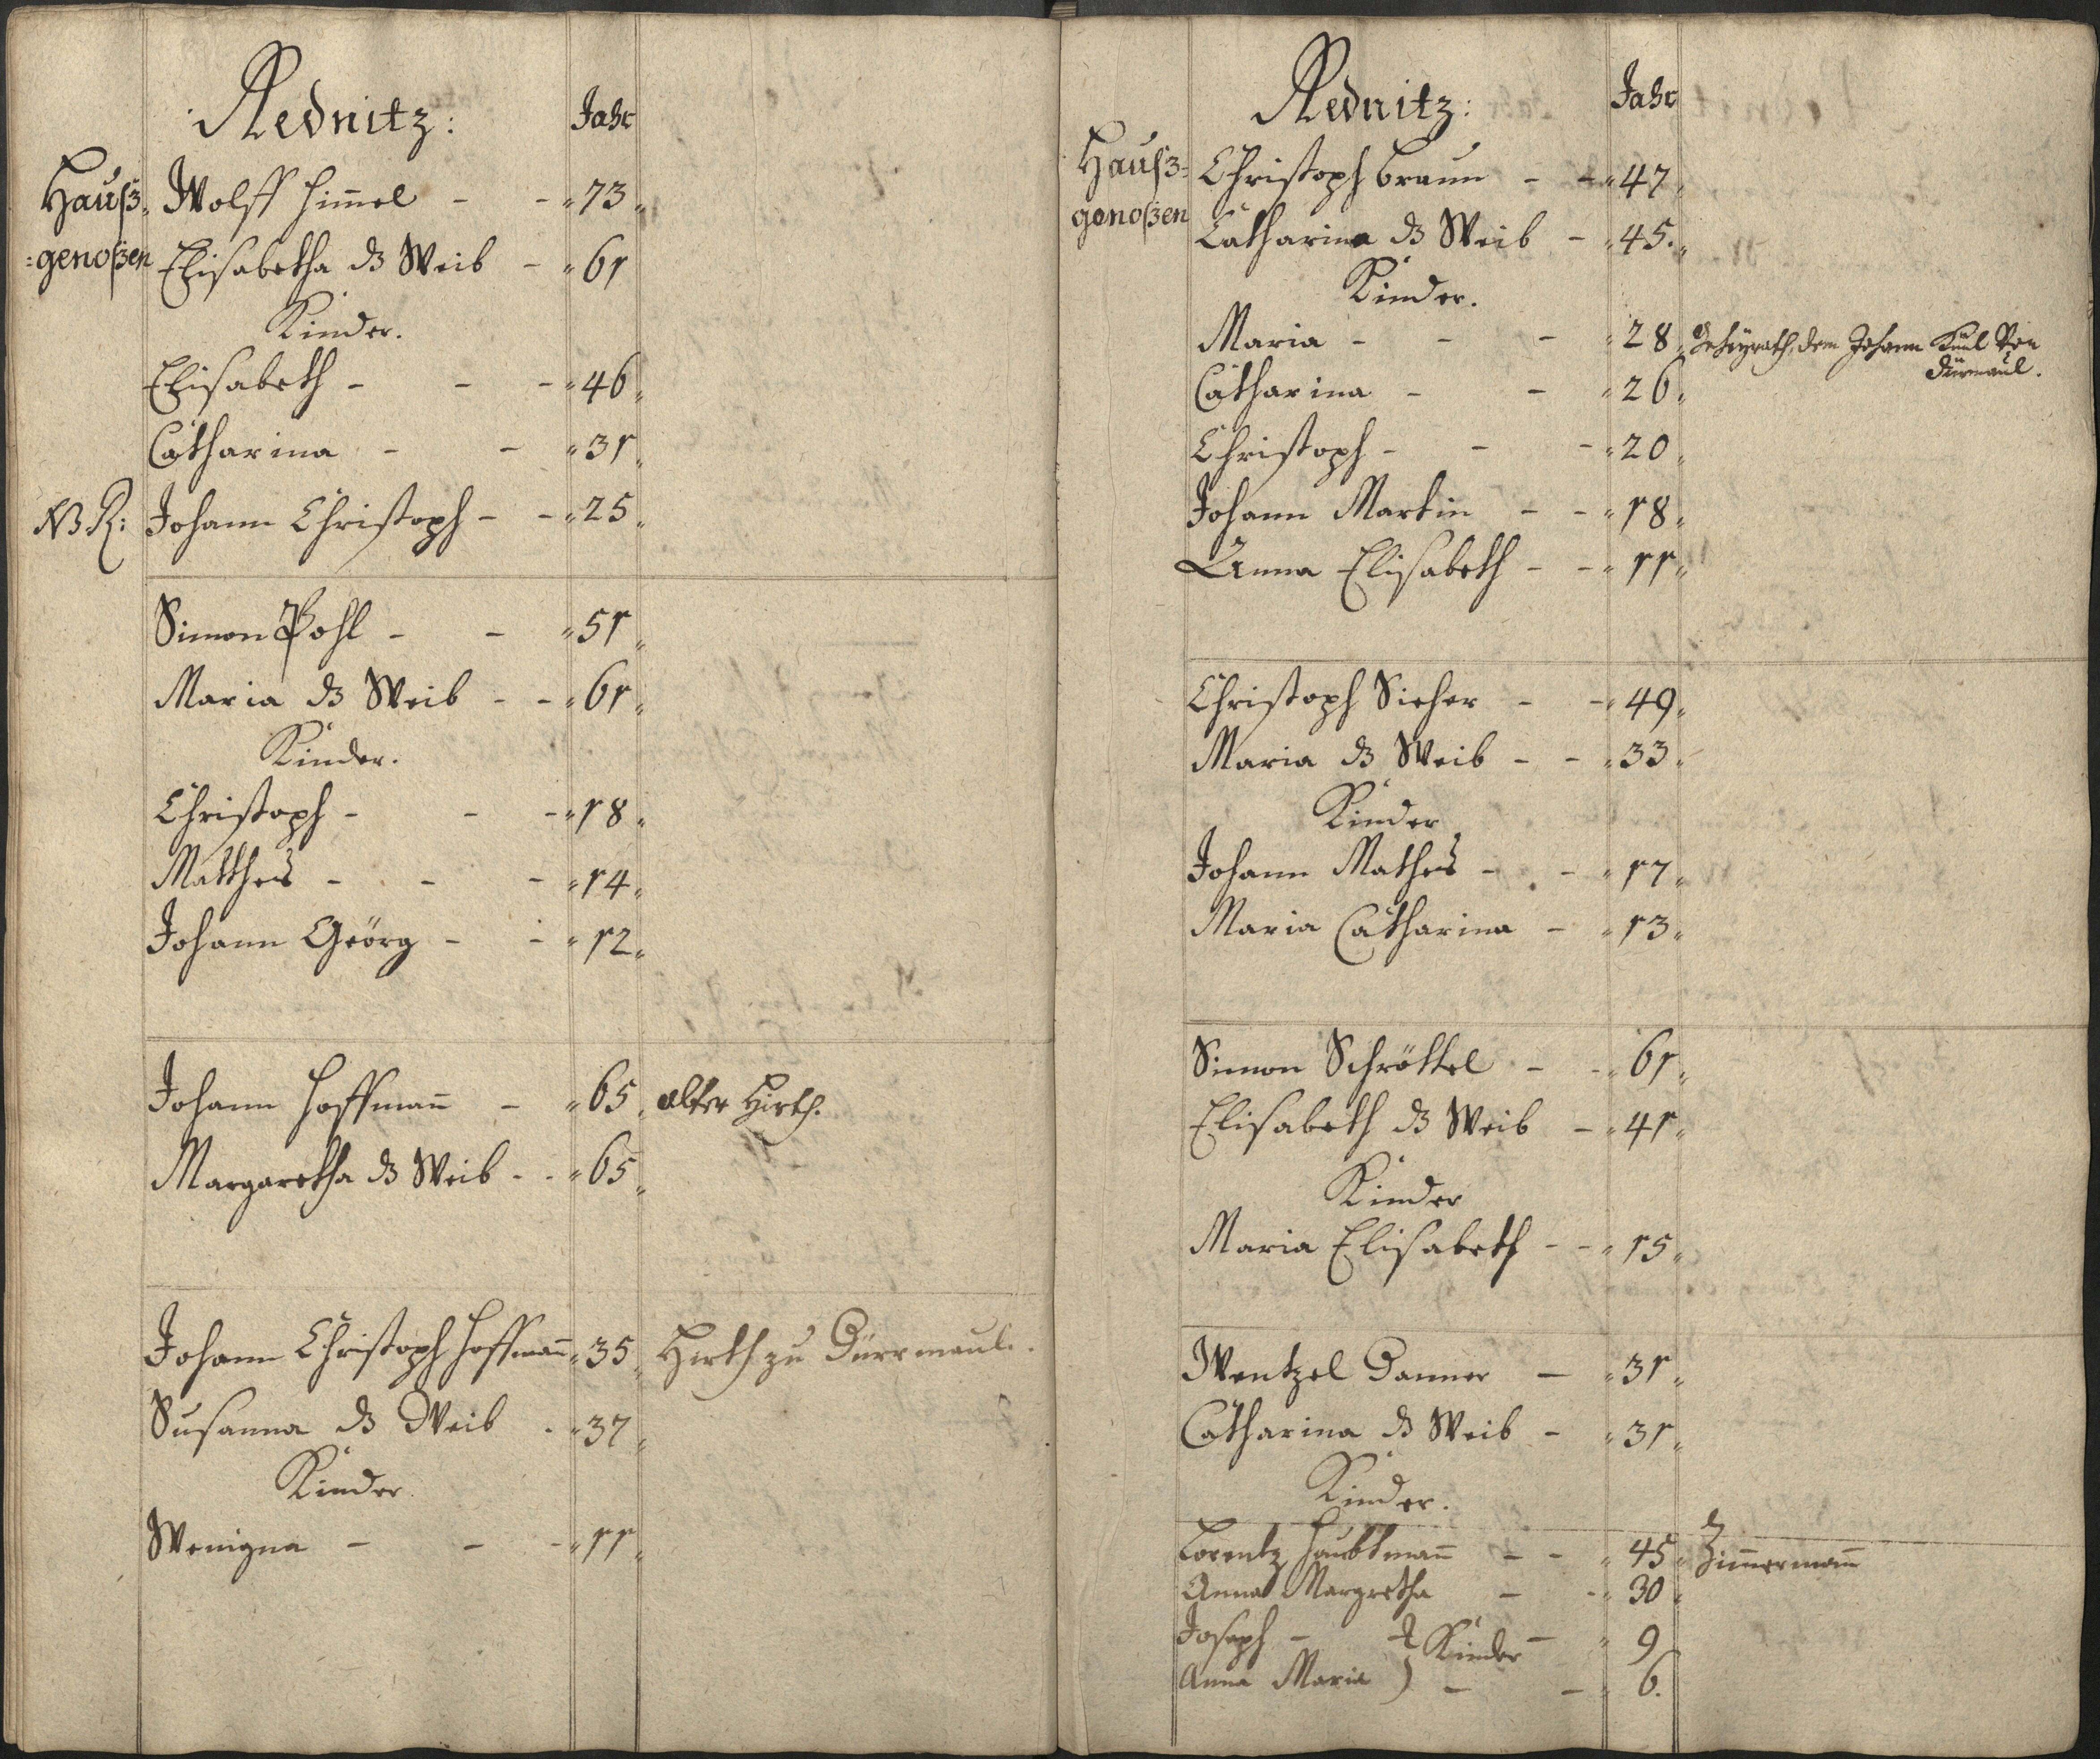 Rednitz: Jahr
Hauß- Wolff Him̄el - - 73
=genoßen Elisabetha ds Weib - 61
Kinder.
Elisabeth - - - 46
Catharina - - 31
NB R: Johann Christoph - - 25
Simon Pohl - - 51
Maria ds Weib - - 61
Kinder.
Christoph - - - 18
Matthes - - - 14
Johann Geörg - - 12
Johann Hoffman̄ - 65 alter Hirth.
Margaretha ds Weib - - 65
Johann Christoph Hoffman̄ 35 Hirth zu Dürrmaul.
Susanna ds Weib - 37
Kinder
Wenigna - - - 11
Rednitz: Jahr
Hauß= Christoph Braun - - 47
genoßen Catharina ds Weib - 45
Kinder.
Maria - - - 28 Geheyrath, dem Johann Küml Von
Dürmaul.
Catharina - - 26
Christoph - - - 20
Johann Martin - - 18
Anna Elisabeth - - 11
Christoph Sieher - - 49
Maria ds Weib - - 33
Kinder
Johann Mathes - - 17
Maria Catharina - 13
Simon Schröttel - - 61
Elisabeth ds Weib - 41
Kinder
Maria Elisabeth - - 15
Wentzel Danner - 31
Catharina ds Weib - 31
Kinder.
Lorentz Haubtman̄ - - 45 Zim̄erman̄
Anna Margretha - - 30
Joseph - } Kinder - 9
Anna Maria ) - - 6.